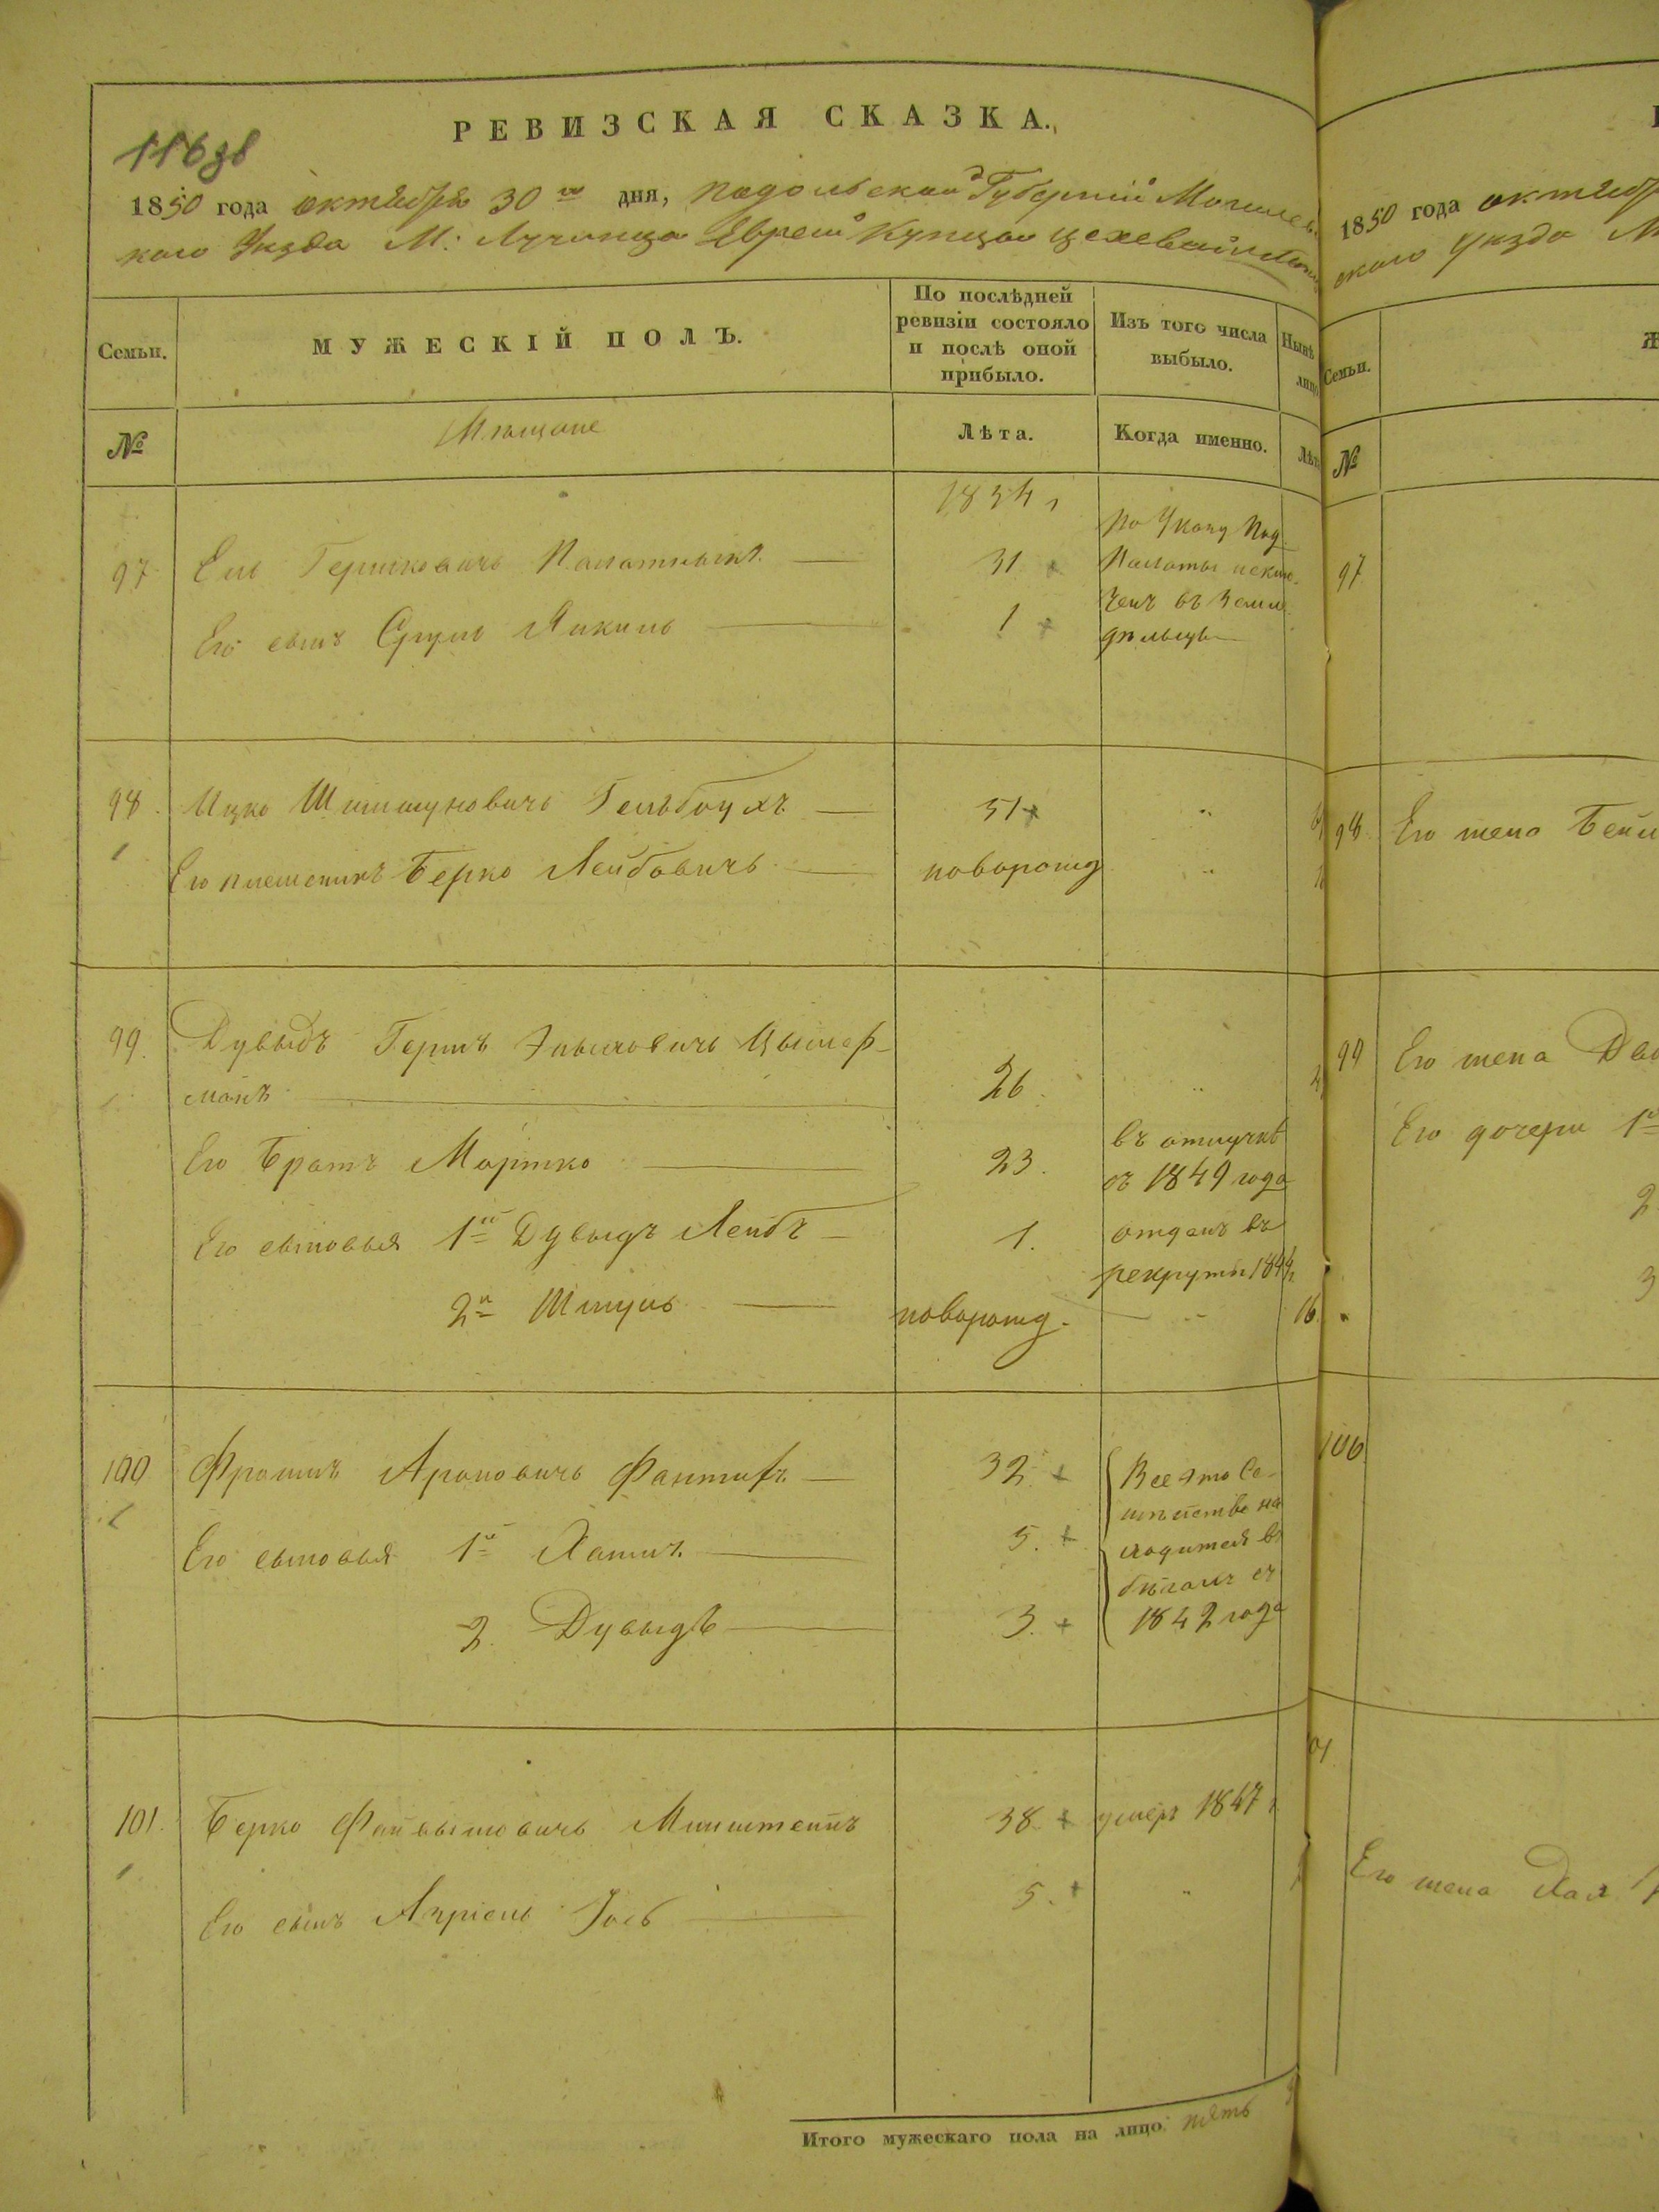 116 зв
РЕВИЗСКАЯ СКАЗКА.
1850 года октября 30го дня, Подольской Губернии Могилев-
кого Уезда М: Лучинца Евреи Купцы цеховые и
Семьи.
МУЖЕСКІЙ ПОЛЪ.
По послѣдней
ревизіи состояло
и послѣ оной
прибыло.
Изъ того числа
выбыло.
Нынѣ
лицо
№
Мѣщане
Лѣта.
Когда именно.
Лѣт
1834 г
97
Ель Гершковичъ Палатныкъ — 31 По Указу Под.
Палаты исклю-
Его сынъ Сруль Янкиль — 1 ченъ въ Земле-
дѣльцы
98. Ицко Шимшуновичъ Гельбоухъ — 51 "
Его племеникъ Берко Лейбовичъ — новорожд "
99. Дувыдъ Гершъ Цымер-
манъ — 26. "
Его Братъ Мортко — 23. въ отлучкѣ
съ 1849 года
Его сыновья 1й Дувыдъ Лейбъ — 1. отданъ въ
рекруты 1844 г.
2й Шмуль — новорожд. — " 16.
100 Фроимъ Ароновичъ — 32. Все это Се-
мѣйство на
Его сыновья 1й Хаимъ — 5. ходится въ
бѣгахъ съ
2. Дувыдъ — 3. 1842 года
101. Берко Файвышовичъ Минштейнъ 38. умеръ 1847 г
Его сынъ Азріель Іось — 5. "
Итого мужескаго пола на лицо: пять
1850 года октяб
ского Уезда М
Семьи.
Ж
№
97
98. Его жена Бейл
99 Его жена
Его дочери 1я
2
3
100
Его жена Хая